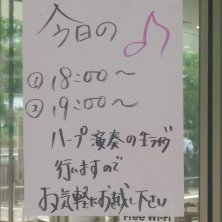 今日の♪
① 18:00～
② 19:00～
ハープ演奏の生ライブ
行いますので
お気軽にお越し下さい
Free Wi-Fi